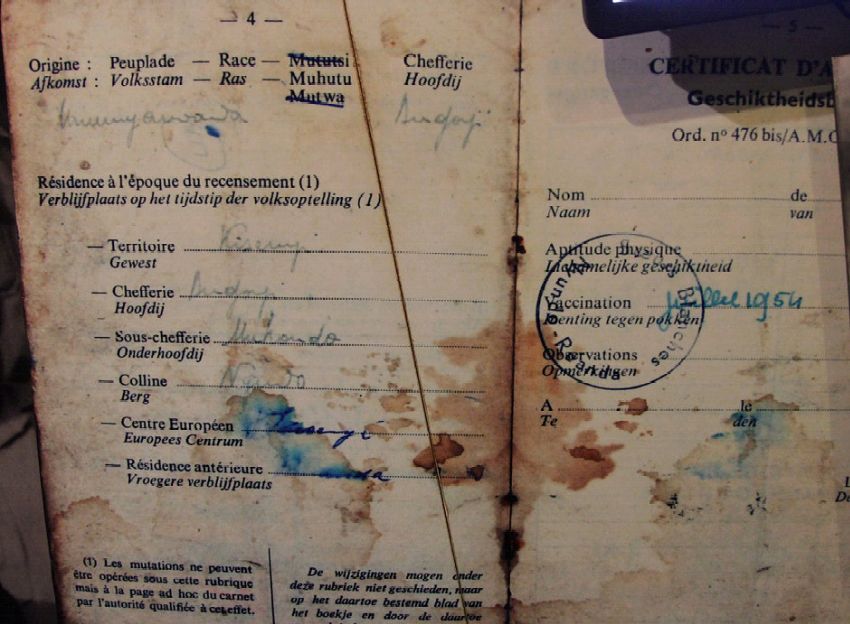 — 4 —
Origine : Peuplade — Race — Mututsi Chefferie
Afkomst : Volksstam — Ras — Muhutu Hoofdij
Mutwa
Résidence à l'époque du recensement (1)
Verblijfplaats op het tijdstip der volksoptelling (1)
— Territoire Kisenyi
Gewest
— Chefferie
Hoofdij
— Sous-chefferie
Onderhoofdij
— Colline
Berg
— Centre Européen Kisenyi
Europees Centrum
— Résidence antérieure
Vroegere verblijfplaats
(1) Les mutations ne peuvent
être opérées sous cette rubrique
mais à la page ad hoc du carnet
par l'autorité qualifiée à cet effet.
De wijzigingen mogen onder
deze rubriek niet geschieden, maar
op het daartoe bestemd blad van
het boekje en door de daartoe
— 5 —
CERTIFICAT D'A
Geschiktheidsb
Ord. nº 476 bis/A.M.O
Nom de
Naam van
Aptitude physique
Lichamelijke geschiktheid
Vaccination juillet 1954
Inenting tegen pokken
Observations
Opmerkingen
A le
Te den